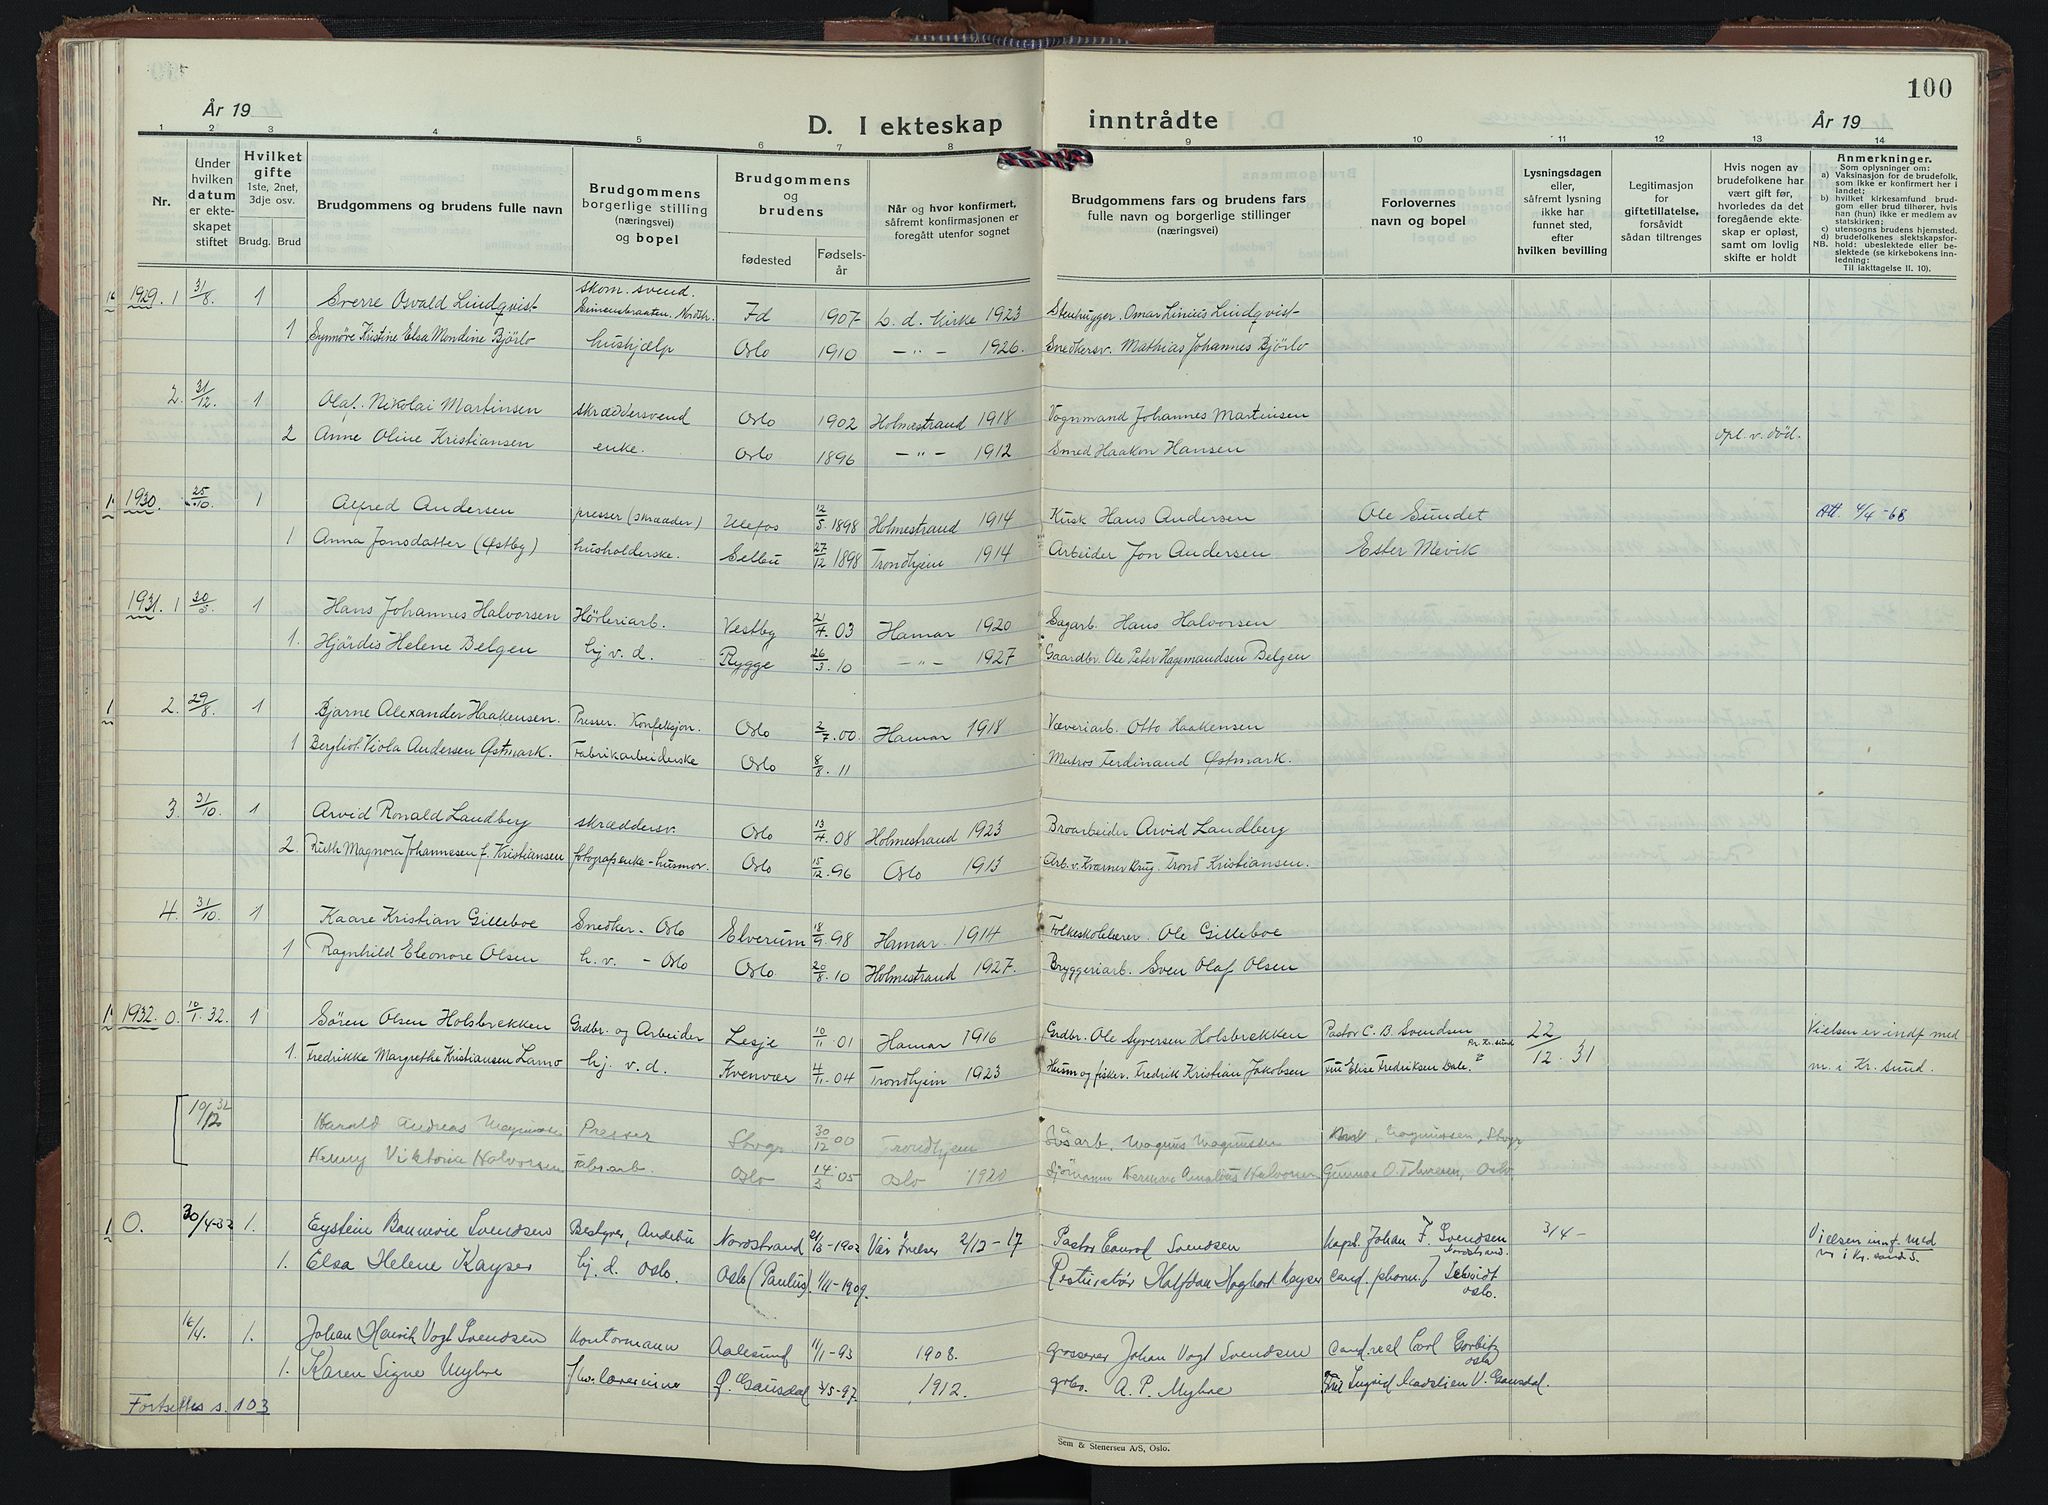 100
År 19
D. I ekteskap
inntrådte
År 19
1 2 3 4 5 6 7 8 9 10 11 12 13 14
Nr.
Under hvilken datum er ekteskapet stiftet
Hvilket gifte 1ste, 2net, 3dje osv.
Brudg. Brud
Brudgommens og brudens fulle navn
Brudgommens borgerlige stilling (næringsvei) og bopel
Brudgommens og brudens
fødested
Fødselsår
Når og hvor konfirmert, såfremt konfirmasjonen er foregått utenfor sognet
Brudgommens fars og brudens fars fulle navn og borgerlige stillinger (næringsvei)
Forlovernes navn og bopel
Lysningsdagen eller, såfremt lysning ikke har funnet sted, efter hvilken bevilling
Legitimasjon for giftetillatelse, forsåvidt sådan tiltrenges
Hvis nogen av brudefolkene har vært gift før, hvorledes da det foregående ekteskap er opløst, samt om lovlig skifte er holdt
Anmerkninger.
Som oplysninger om:
a) Vaksinasjon for de brudefolk, som ikke er konfirmert her i landet;
b) hvilket kirkesamfund brudgom eller brud tilhører, hvis han (hun) ikke er medlem av statskirken;
c) utensogns brudens hjemsted.
d) brudefolkenes slektskapsforhold: ubeslektede eller beslektede (se kirkebokens innledning;
NB.
Til iakttagelse II. 10).
1929. 1 31/8. 1 Sverre Osvald Lindqvist skom. svend. Simensbraaten. Nordstr. Id 1907 L. d. Kirke 1923 Stenhugger. Omar Linius Lindqvist
1 Synnøve Kristine Elsa Mondine Bjørlo hushjælp Oslo 1910 —"— 1926. Snedkersv. Mathias Johannes Bjørlo
2. 31/12. 1 Olaf. Nikolai Martinsen skræddersvend Oslo 1902 Holmestrand 1918 Vognmand Johannes Martinsen
2 Anne Oline Kristiansen enke. Oslo 1896 —"— 1912 Smed Haakon Hansen opl. v. død.
1 1930. 25/10. 1 Alfred Andersen presser (skrædder) Ulefos 12/5 1898 Holmestrand 1914 Kusk Hans Andersen Ole Sundet Att. 4/4-68
1 Anna Jonsdatter (Østby) husholderske. Selbu 27/12 1898 Trondhjem 1914 Arbeider Jon Andersen Ester Mevik
1931. 1 30/5. 1 Hans Johannes Halvorsen Høvleriarb. Vestby 21/4. 03 Hamar 1920 Sagarb. Hans Halvorsen
1. Hjørdis Helene Belgen hj. v. d. Rygge 26/3. 10 —"— 1927 Gaardbr. Ole Peter Hagemandsen Belgen
1 2. 29/8. 1 Bjarne Alexander Haakensen. Presser. Konfeksjon. Oslo 2/7. 00. Hamar 1918 Væveriarb. Otto Haakensen
1 Bergliot Viola Andersen Østmark. Fabrikarbeiderske Oslo 8/8. 11 Matros Ferdinand Østmark.
3. 31/10. 1 Arvid Ronald Landberg skræddersv. Oslo 13/4. 08 Holmestrand 1923 Broarbeider Arvid Landberg
2. Ruth Magnora Johannesen f. Kristiansen fotografenke - husmor. Oslo 15/12. 96 Oslo 1913 Arb. v. Kværner Brug. Trond Kristiansen.
4. 31/10. 1 Kaare Kristian Gilleboe Snedker - Oslo Elverum 18/9. 98 Hamar. 1914 Folkeskolelærer. Ole Gilleboe
1 Ragnhild Eleonore Olsen h. v. - Oslo Oslo 20/8. 10 Holmestrand 1927. Bryggeriarb. Sven Olaf Olsen
1 1932. 0. 10/1. 32. 1 Søren Olsen Holsbrekken Grdbr. og Arbeider Lesje 10/11 01 Hamar 1916 Grdbr. Ole Syversen Holsbrekken Pastor C. B. Svendsen 22/12. 31 Vielsen er indf med
1. Fredrikke Margrethe Kristiansen Lamo hj. v. d. Kvenvær 4/11. 04 Trondhjem 1923 Husm og fisker. Fredrik Kristian Jakobsen Fru Elise Fredriksen Dale. m. i Kr. sund.
10/12 32 Harald Andreas Presser 30/12 00 Trondhjem
Henny Viktoria Halvorsen Fabr.arb. Oslo 14/3 05 Oslo 1920 Halvorsen Gunnar O. Thoresen, Oslo.
1 0. 30/4-32 1. Eystein Svendsen Bestyrer, Andebu Nordstrand 1902 Vår Frelser 2/12-17 Pastor Conrad Svendsen Kapt. Johan F. Svendsen Nordstrand. 3/4 - Vielsen innf. med
1. Elsa Helene Kayser hj. d. Oslo. Oslo (Paulus) 1/11-1909. Halfdan Hagbart Kayser cand. pharm. Schmidt Oslo.
16/4. 1. Johan Henrik Vogt Svendsen Kontormann Aalesund 11/1-93 1908. grosserer Johan Vogt Svendsen Cand. real Carl Oslo
1. Karen Signe Myhre lærerinne Ø. Gausdal 3/5-97 1912. grbr. A. P. Myhre Ingrid V. Gausdal.
Fortsettes s. 103
Sem & Stenersen A/S, Oslo.